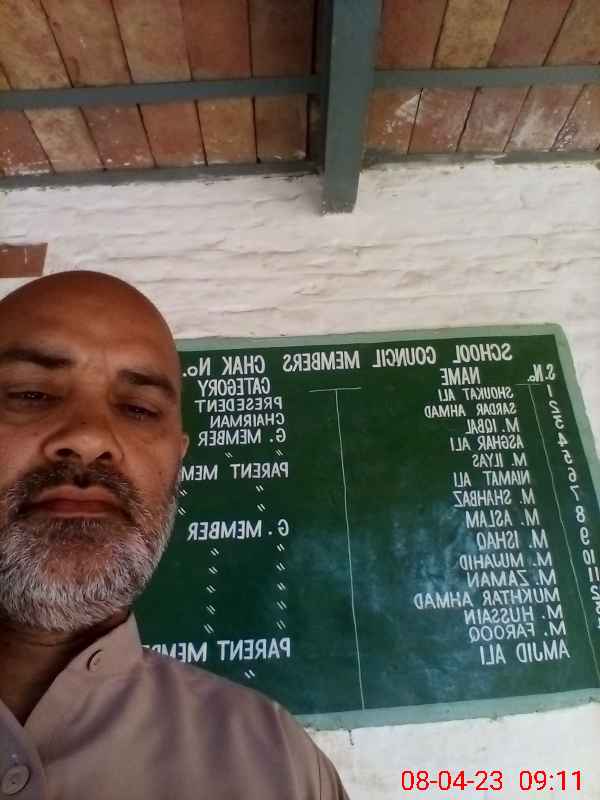 SCHOOL COUNCIL MEMBERS CHAK No.
S.No. NAME CATEGORY
1 SHOUKAT ALI PRESEDENT
2 SARDAR AHMAD CHAIRMAN
3 M. IQBAL G. MEMBER
4 ASGHAR ALI "
5 M. ILYAS PARENT MEM
6 NIAMAT ALI "
7 M. SHAHBAZ "
8 M. ASLAM G. MEMBER
9 M. ISHAQ "
10 M. MUJAHID "
11 M. ZAMAN "
2 MUKHTAR AHMAD "
3 M. HUSSAIN "
M. FAROOQ PARENT MEMBE
AMJID ALI "
08-04-23 09:11